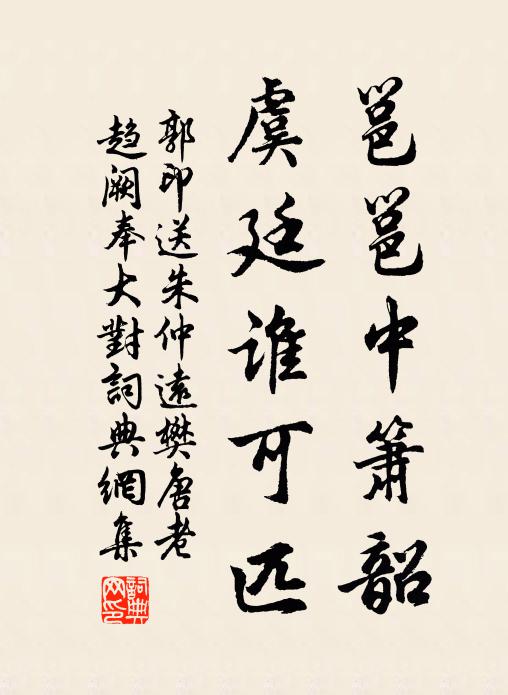 邕邕中箫韶
虞廷谁可匹
郭印送朱仲遠樊唐老
趋阙奉大對詞典網集
詞典网印